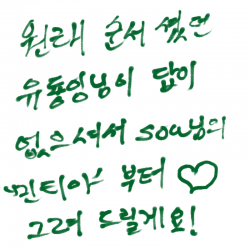 원래 순서 였던
유튱잉님이 답이
없으셔서 sow님의
"민티아" 부터 ♡
그려 드릴게요!